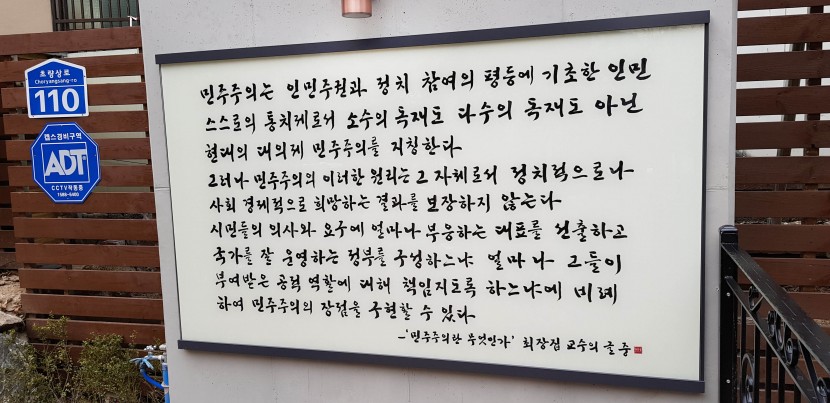 초량상로
Choryangsang-ro
110
캡스경비구역
ADT
CCTV작동중
1588-6400
민주주의는 인민주권과 정치 참여의 평등에 기초한 인민
스스로의 통치체로서 소수의 독재도 다수의 독재도 아닌
현대의 대의제 민주주의를 지칭한다
그러나 민주주의의 이러한 원리는 그 자체로서 정치적으로나
사회 경제적으로 희망하는 결과를 보장하지 않는다
시민들의 의사와 요구에 얼마나 부응하는 대표를 선출하고
국가를 잘 운영하는 정부를 구성하느냐 얼마나 그들이
부여받은 공적 역할에 대해 책임지도록 하느냐에 비례
하여 민주주의의 장점을 구현할 수 있다
-'민주주의란 무엇인가' 최장집 교수의 글 중